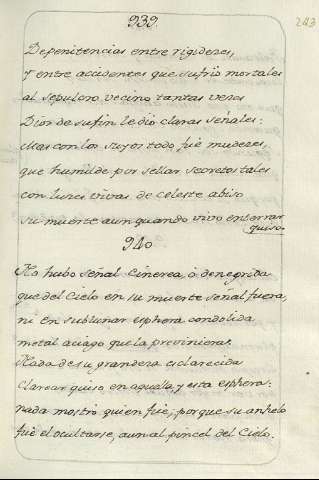 939.
243
De penitencias entre rigideces,
y entre accidentes que sufrió mortales
al sepulcro vecino tantas veces
Dios de su fin le dió claras señales:
Mas con los suyos todo fue
que humilde por sellar secretos tales
con luces vivas de celeste abiso
su muerte aun quando vivo enserrar
quiso.
940
No hubo señal cinerea, ó denegrida
que del Cielo en su muerte señal fuera,
ni en sublunar esphera condolida
metal aciago que la previniera.
Nada de su grandeza esclarecida
Clarear quiso en aquella, y esta esphera:
nada mostró quien fué, porque su anhelo
fué el ocultarse, aun al pincel del Cielo.